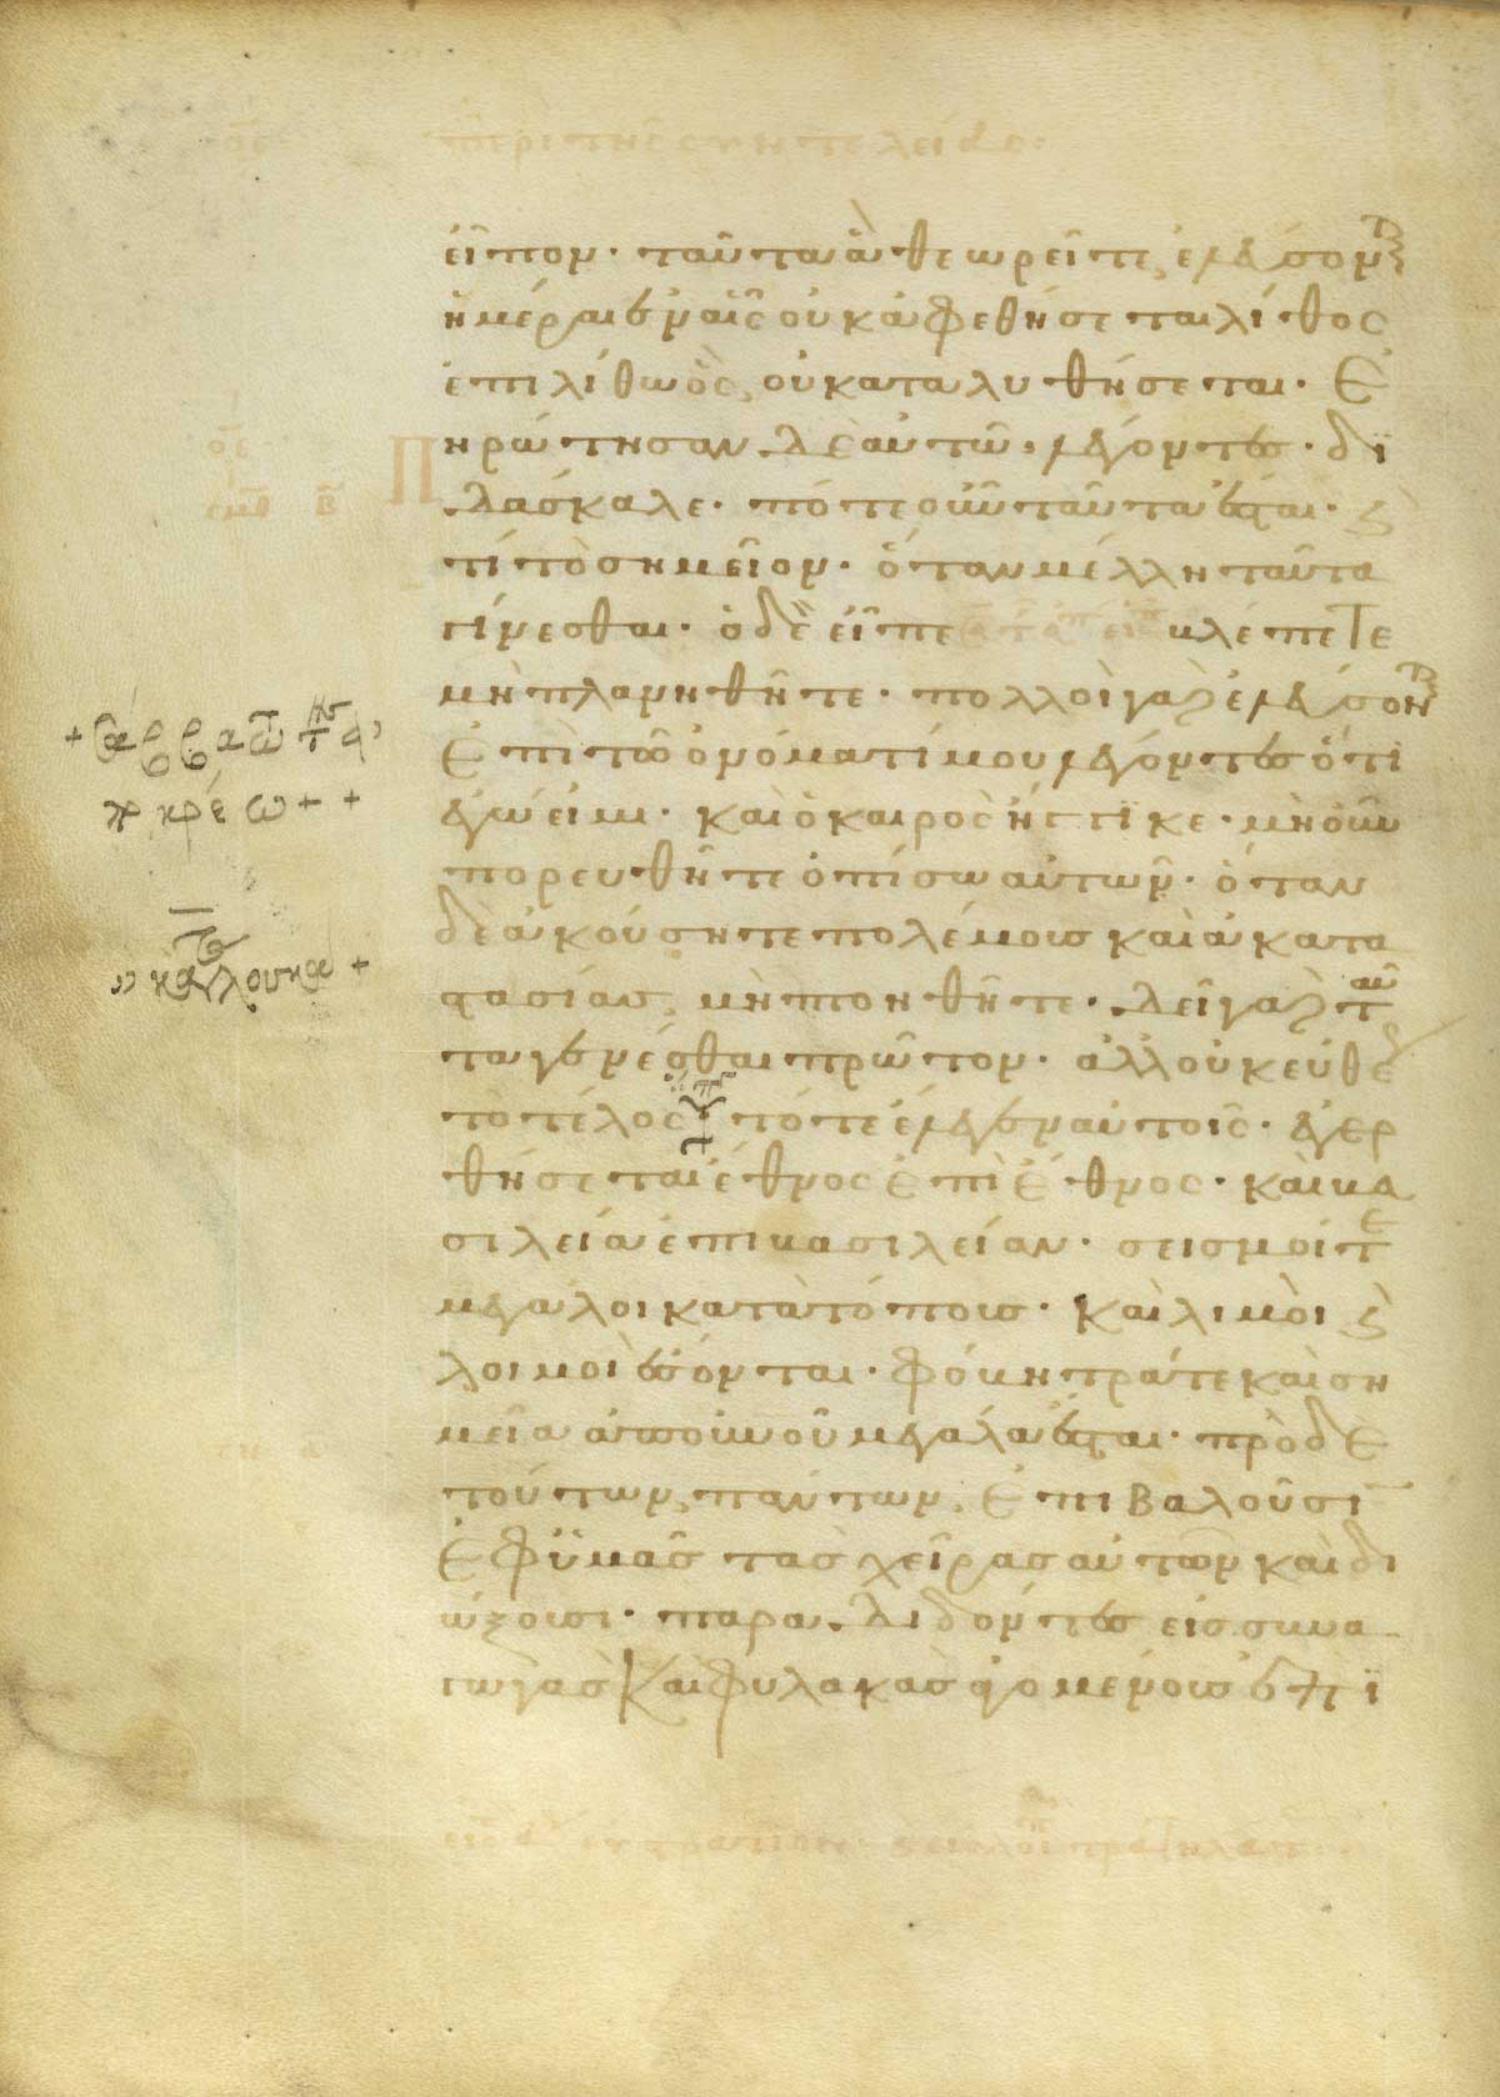 περι της συντελείας
εἶπον· ταῦτα ἃ θεωρεῖτε, ἐλεύσον
ἡμέραι ἐν αἷς οὐκ ἀφεθήσεται λίθος
ἐπι λίθω ὃς οὐ καταλυθήσεται· Ἐ
πηρώτησαν δὲ αὐτῶ· λέγοντες· δι
δάσκαλε· πότε οὖν ταῦτα ἔσται· καὶ
τί τὸ σημεῖον· ὅταν μέλλη ταῦτα
γίνεσθαι· ὁ δὲ εἶπε βλέπετε
μὴ πλανηθῆτε· πολλοὶ γὰρ ἐλεύσον
ἐπὶ τῶ ὀνόματί μου λέγοντες ὅτι
ἐγώ εἰμι· καὶ ὁ καιρὸς ἤγγικε· μὴ οὖν
πορευθῆτε ὀπίσω αὐτῶν· ὅταν
δὲ ἀκούσητε πολέμους καὶ ἀκατα
στασίας, μὴ πτοηθῆτε· δεῖ γὰρ ταῦ
τα γενέσθαι πρῶτον· ἀλλ οὐκ εὐθέ
τὸ τέλος· τότε ἔλεγεν αὐτοῖς· ἐγερ
θήσεται ἔθνος ἐπὶ ἔθνος· καὶ βα
σιλεία ἐπι βασιλείαν· σεισμοί τε
μεγάλοι κατὰ τόπους· καὶ λιμοὶ καὶ
λοιμοὶ ἔσονται· φόβητρά τε καὶ ση
μεῖα ἀπ οὐνοῦ μεγάλα ἔσται· πρὸ δὲ
τούτων πάντων, ἐπιβαλοῦσι
ἐφ ὑμᾶς τὰς χεῖρας αὐτῶν καὶ δι
ώξουσι· παραδιδόντες εἰς συνα
γωγὰς καὶ φυλακὰς ἀγομένους ἐπὶ